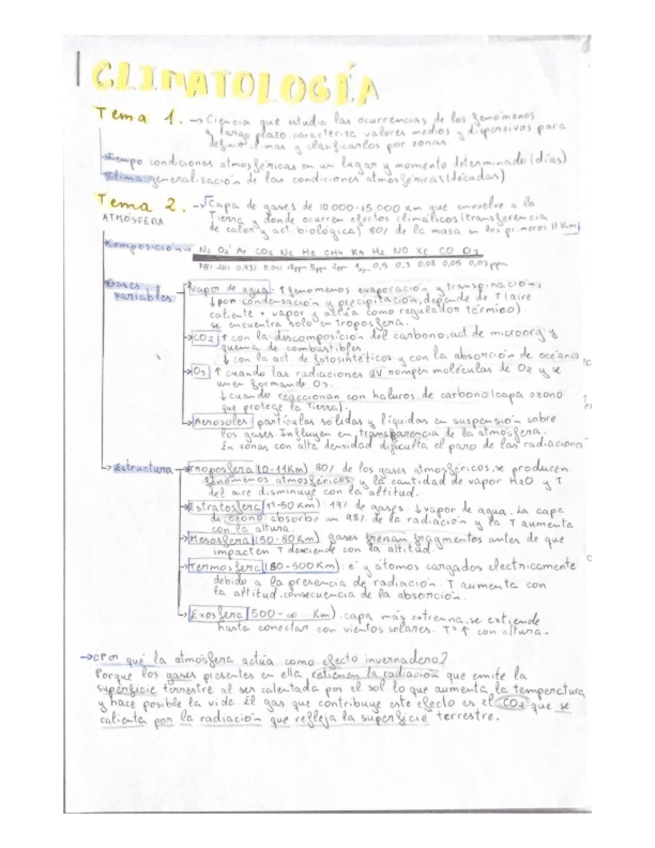 CLIMATOLOGÍA
Tema 1. → Ciencia que estudia las ocurrencias de los fenómenos
a largo plazo, caracteriza valores medios y dispersivos para
definir climas y clasificarlos por zonas.
→ Tiempo condiciones atmosféricas en un lugar y momento determinado (días)
→ Clima generalización de las condiciones atmosféricas (décadas)
Tema 2. → Capa de gases de 10000-15000 km que envuelve a la
ATMÓSFERA
Tierra y donde ocurren efectos climáticos (transferencia
de calor y act. biológica) 80% de la masa en los primeros 11 Km
Composición → N2 O2 Ar CO2 Ne He CH4 Kr H2 NO Xe CO O3
Gases variables
→ Vapor de agua: ↑ fenómenos evaporación y transpiración,
↓ por condensación y precipitación, depende de T (aire
caliente + vapor y actúa como regulador térmico).
se encuentra solo en troposfera.
→ CO2 ↑ con la descomposición del carbono, act. de microorg y
quema de combustibles
↓ con la act. de fotosintéticos y con la absorción de océanos
→ O3 ↑ cuando las radiaciones UV rompen moléculas de O2 y se
unen formando O3.
↓ cuando reaccionan con haluros de carbono (capa ozono
que protege la Tierra).
→ Aerosoles partículas sólidas y líquidas en suspensión sobre
los gases. Influyen en transparencia de la atmósfera.
En zonas con alta densidad dificulta el paso de las radiaciones
→ Estructura → Troposfera (0-11Km) 80% de los gases atmosféricos, se producen
fenómenos atmosféricos y la cantidad de vapor H2O y T
del aire disminuye con la altitud.
→ Estratosfera (11-50 Km): 19% de gases. ↓ vapor de agua. La capa
de ozono absorbe un 98% de la radiación y la T aumenta
con la altura.
→ Mesosfera (50-80Km) gases frenan fragmentos antes de que
impacten T desciende con la altitud.
→ Termosfera (80-500Km): e⁻ y átomos cargados electricamente
debido a la presencia de radiación. T aumenta con
la altitud, consecuencia de la absorción.
→ Exosfera (500-∞ Km). capa más extrema, se extiende
hasta conectar con vientos solares. T ↑ con altura.
→ ¿Por qué la atmósfera actúa como efecto invernadero?
Porque los gases presentes en ella retienen la radiación que emite la
superficie terrestre al ser calentada por el sol lo que aumenta la temperatura
y hace posible la vida. El gas que contribuye este efecto es el CO2 que se
calienta por la radiación que refleja la superficie terrestre.